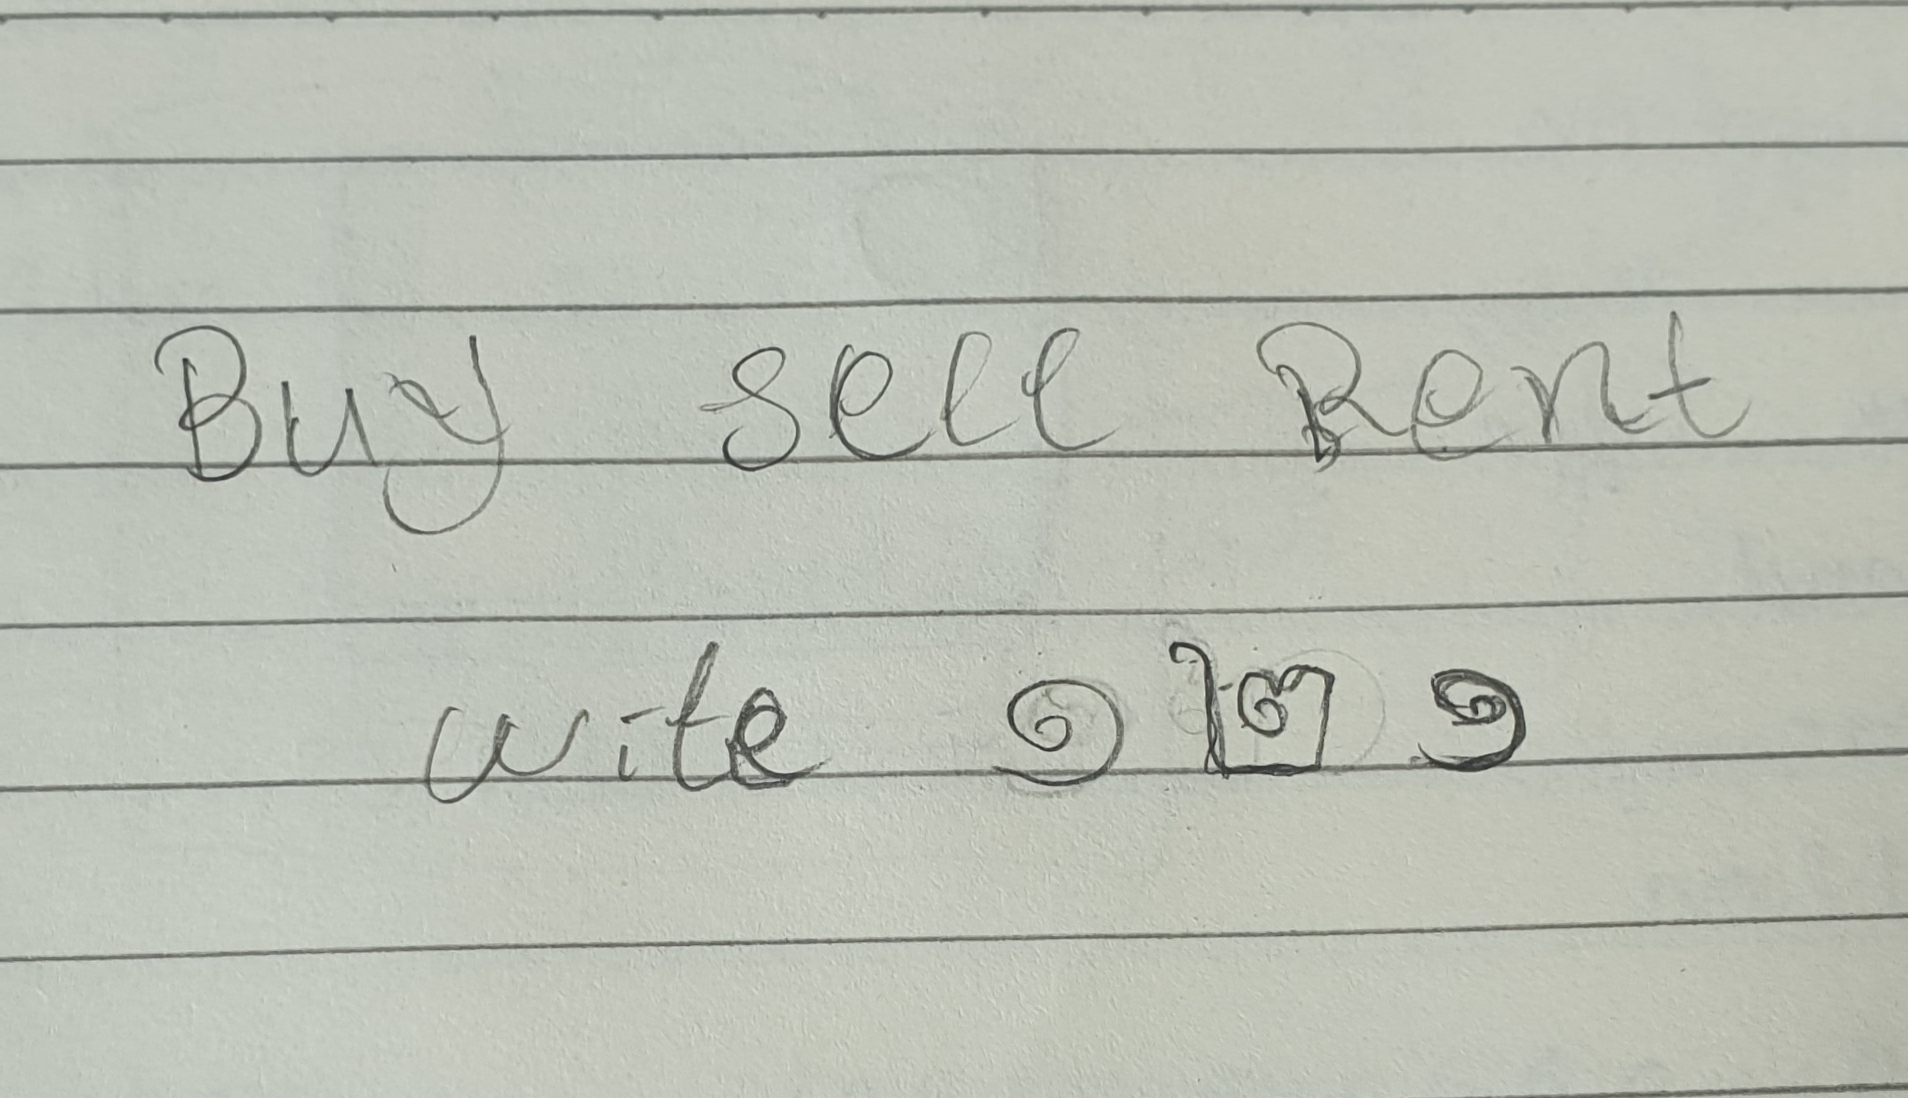 Buy Sell Rent
wite ๑ ๒ ๑